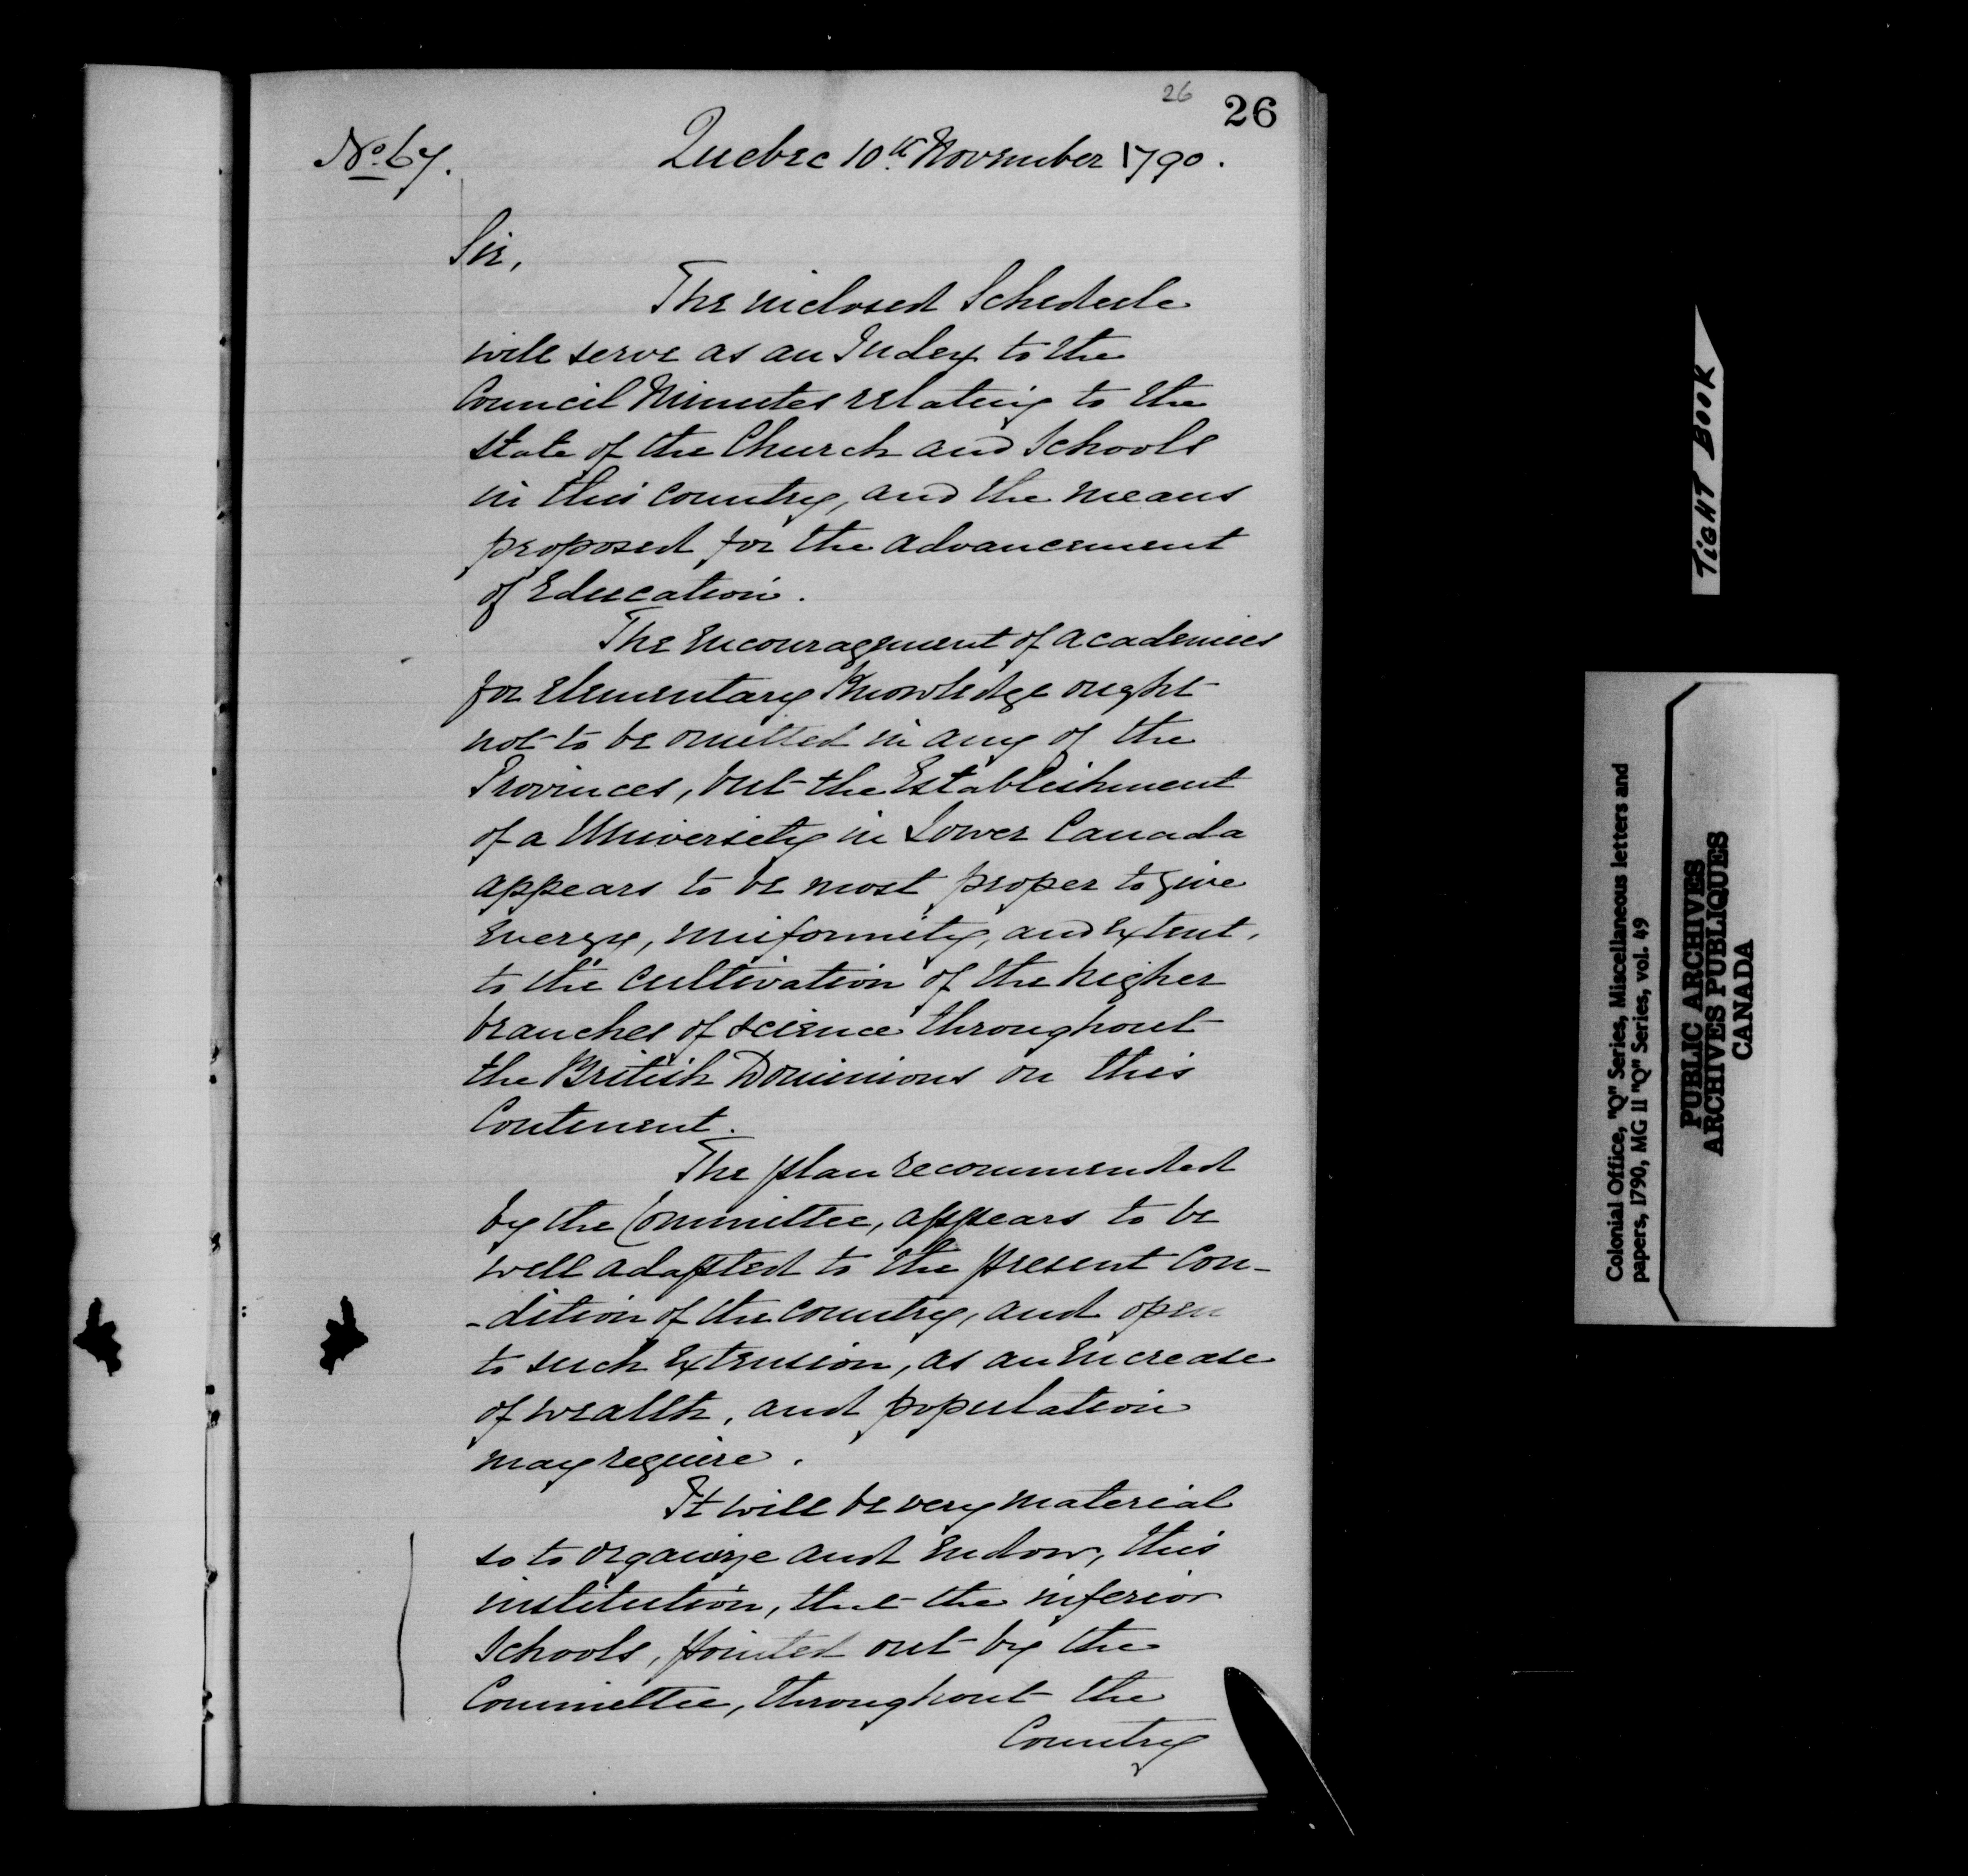 26
26
No. 67.
Quebec 10th November 1790.
Sir,
The inclosed Schedule
will serve as an Index to the
Council Minutes relating to the
state of the Church and Schools
in this country, and the means
proposed for the advancement
of Education.
The encouragement of academies
for elementary knowledge ought
not to be omitted in any of the
Provinces, but the Establishment
of a University in Lower Canada
appears to be most proper to give
energy, uniformity, and extent,
to the cultivation of the higher
branches of science throughout
the British Dominions on this
Continent.
The plan recommended
by the Committee, appears to be
well adapted to the present Con-
-dition of the country, and open
to such extension, as an increase
of wealth, and population
may require.
It will be very material
so to organize and endow, this
institution, that the inferior
Schools, pointed out by the
Committee, throughout the
Country
TIGHT BOOK
Colonial Office, "Q" Series, Miscellaneous letters and
papers, 1790, MG 11 "Q" Series, vol. 49
PUBLIC ARCHIVES
ARCHIVES PUBLIQUES
CANADA